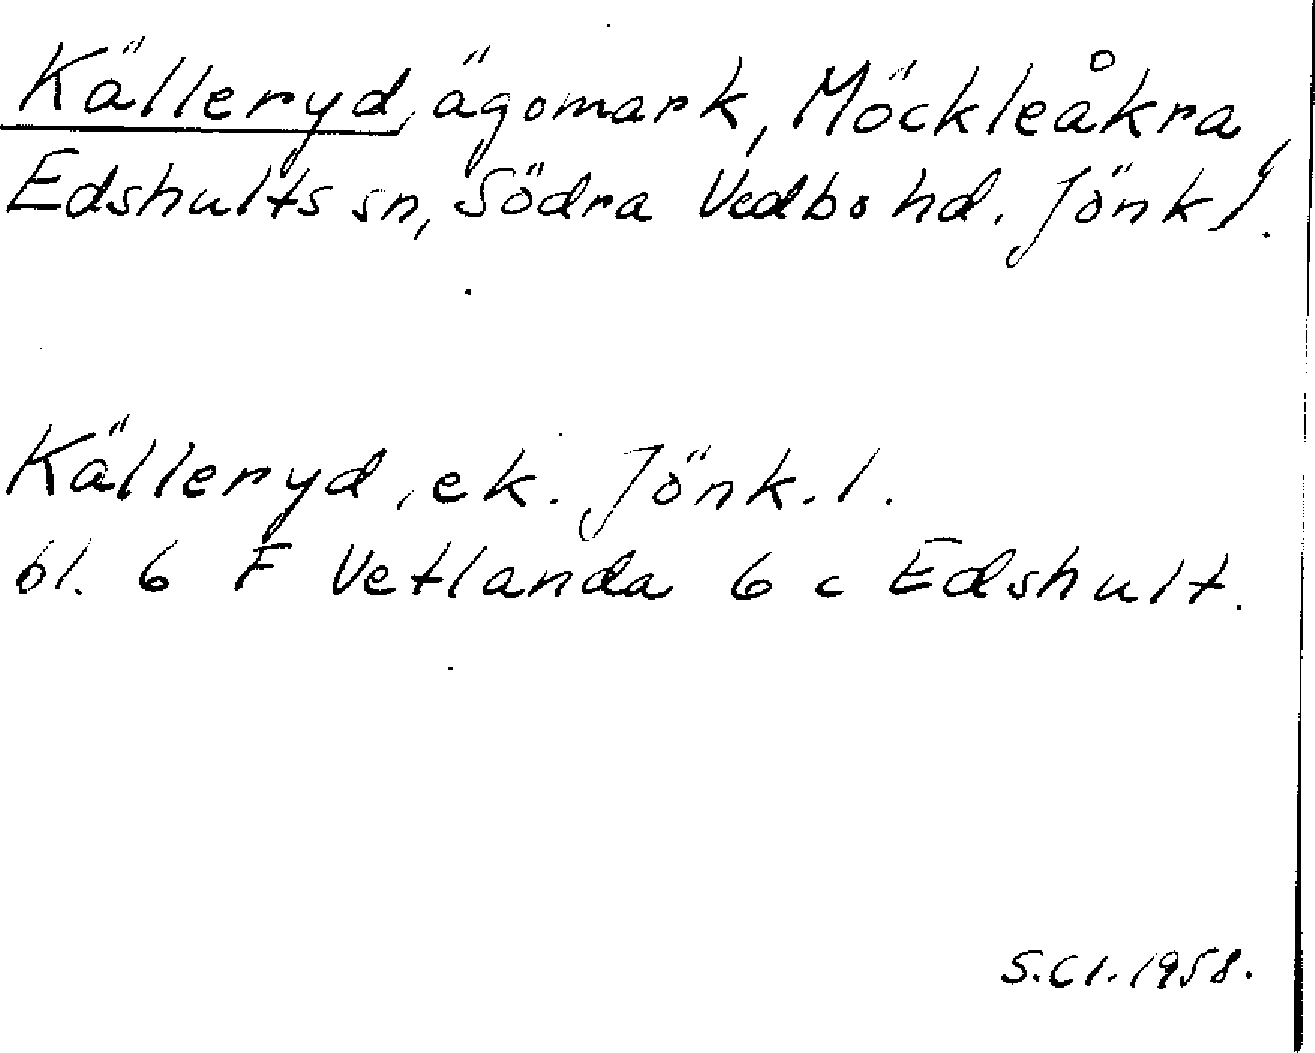 Källeryd, ägomark, Möckleåkra,
Edshults sn, Södra Vedbo hd. Jönk l.
Källeryd, ek. Jönk. l.
bl. 6 F Vetlanda 6 c Edshult.
S.Cl. 1958.